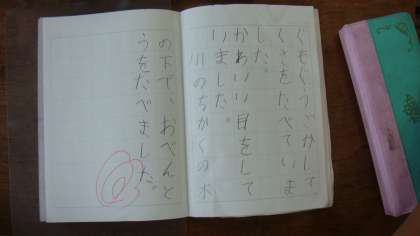 くもぐうごかして、
くさをたべていま
した。
かわいい目をして
いました。
川のちかくの木
の下で、おべんと
うをたべました。